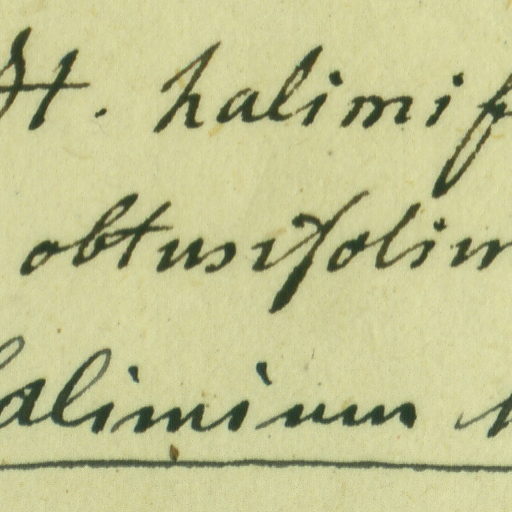 H. halimif
obtusifolium
alimium